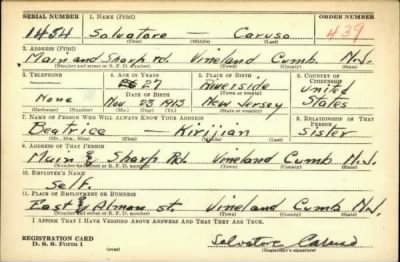 SERIAL NUMBER 1. NAME (Print) ORDER NUMBER
1454 Salvatore — Caruso 439
(First) (Middle) (Last)
2. ADDRESS (Print)
Main and Sharp rd. Vineland Cumb. N.J.
(Number and street or R. F. D. number) (Town) (County) (State)
3. TELEPHONE 4. AGE IN YEARS 5. PLACE OF BIRTH 6. COUNTRY OF CITIZENSHIP
27 Riverside United
DATE OF BIRTH (Town or county)
None Nov. 23 1913 New Jersey States
(Exchange) (Number) (Mo.) (Day) (Yr.) (State or country)
7. NAME OF PERSON WHO WILL ALWAYS KNOW YOUR ADDRESS 8. RELATIONSHIP OF THAT PERSON
Beatrice — Kirijian Sister
(Mr., Mrs., Miss) (First) (Middle) (Last)
9. ADDRESS OF THAT PERSON
Main & Sharp Rd. Vineland Cumb N.J.
(Number and street or R. F. D. number) (Town) (County) (State)
10. EMPLOYER'S NAME
Self.
11. PLACE OF EMPLOYMENT OR BUSINESS
East & Almon st. Vineland Cumb N.J.
(Number and street or R. F. D. number) (Town) (County) (State)
I AFFIRM THAT I HAVE VERIFIED ABOVE ANSWERS AND THAT THEY ARE TRUE.
REGISTRATION CARD
D. S. S. Form 1 Salvatore Caruso
(Registrant's signature)